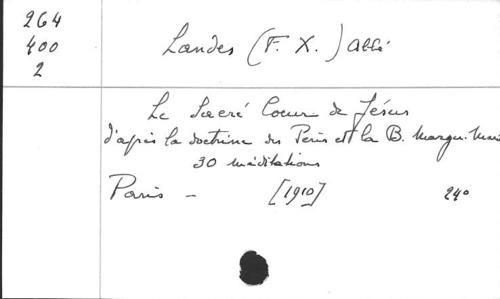 264
400
2
Landes (F. X.) abbé
Le Sacré Coeur de Jésus
d'après la doctrine des Pères et la B. Margu. Mari
30 méditations
Paris - [1910] 24º